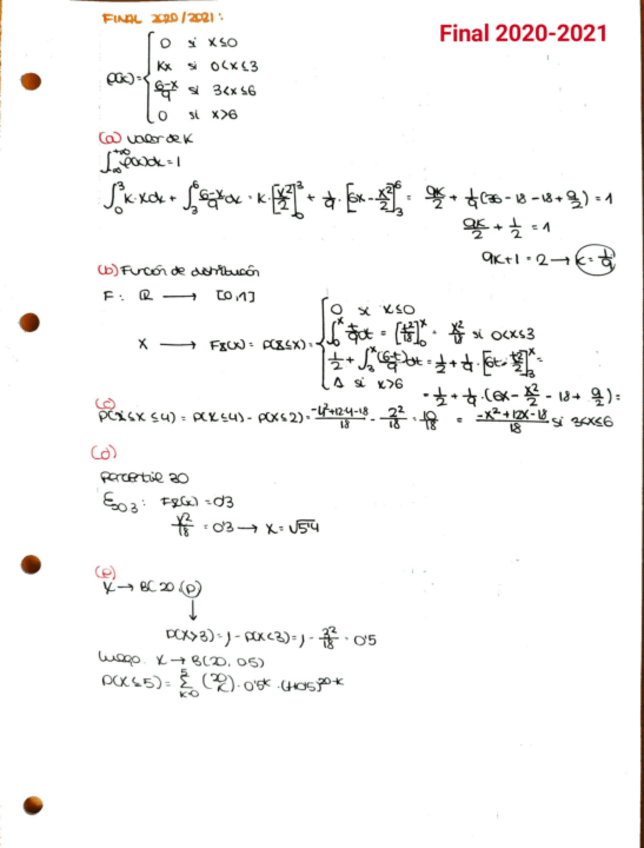 FINAL 2020/2021:
Final 2020-2021
f(x)= { 0 si x≤0
Kx si 0<x≤3
6-x/9 si 3<x≤6
0 si x>6
(a) valor de K
∫_{-∞}^{+∞} f(x)dx = 1
∫_0^3 K·xdx + ∫_3^6 6-x/9 dx = K·[x²/2]_0^3 + 1/9·[6x-x²/2]_3^6 = 9K/2 + 1/9(36-18-18+9/2) = 1
9K/2 + 1/2 = 1
9K+1 = 2 → K = 1/9
(b) Función de distribución
F: R → [0,1]
x → F_X(x) = P(X≤x) = { 0 si x≤0
∫_0^x t/9 dt = [t²/18]_0^x = x²/18 si 0<x≤3
1/2 + ∫_3^x (6-t/9)dt = 1/2 + 1/9·[6t-t²/2]_3^x =
1 si x>6
= 1/2 + 1/9·(6x-x²/2-18+9/2) =
= -x²+12x-18/18 si 3<x≤6
(c)
P(2≤X≤4) = P(X≤4) - P(X≤2) = -4²+12·4-18/18 - 2²/18 = 10/18
(d)
percentil 30
ξ_{0'3}: F_X(x) = 0'3
x²/18 = 0'3 → x = √5'4
(e)
X → B(20,p)
↓
P(X>3) = 1 - P(X<3) = 1 - 3²/18 = 0'5
Luego X → B(20, 0'5)
P(X≤5) = Σ_{k=0}^5 (20 k)·0'5^k·(1-0'5)^{20-k}